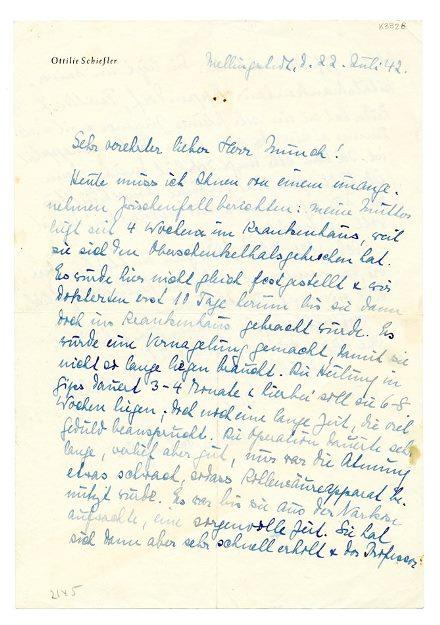 K3328
Ottilie Schiefler
Mellingstedt, d. 22. Juli 42.
Sehr verehrter lieber Herr Munch!
Heute muss ich Ihnen von einem unange-
nehmen Zwischenfall berichten: meine Mutter
liegt seit 4 Wochen im Krankenhaus, weil
sie sich den Oberschenkelhals gebrochen hat.
Es wurde hier nicht gleich festgestellt & wir
dokterten erst 10 Tage herum bis sie dann
doch ins Krankenhaus gebracht wurde. Es
wurde eine Vernagelung gemacht, damit sie
nicht so lange liegen braucht. Die Heilung in
Gips dauert 3-4 Monate & hierbei soll sie 6-8
Wochen liegen; doch noch eine lange Zeit, die viel
Geduld beansprucht. Die Operation dauerte sehr
lange, verlief aber gut, nur war die Atmung
etwas schwach, sodass Kohlensäureapparat be-
nützt wurde. Es war bis sie aus der Narkose
aufwachte, eine sorgenvolle Zeit. Sie hat
sich dann aber sehr schnell erholt & der Professor
2145